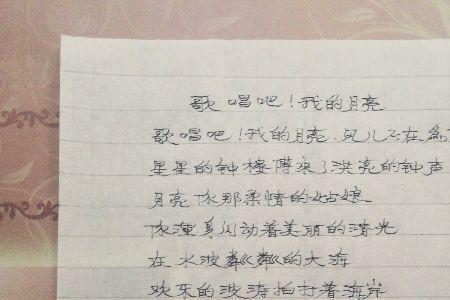 歌唱吧!我的月亮
歌唱吧!我的月亮,风儿不在
星星的钟楼傳來了洪亮的钟声
月亮你那柔情的姑娘
你渾身闪动着美丽的清光
在水波粼粼的大海
欢乐的波涛拍打着海岸